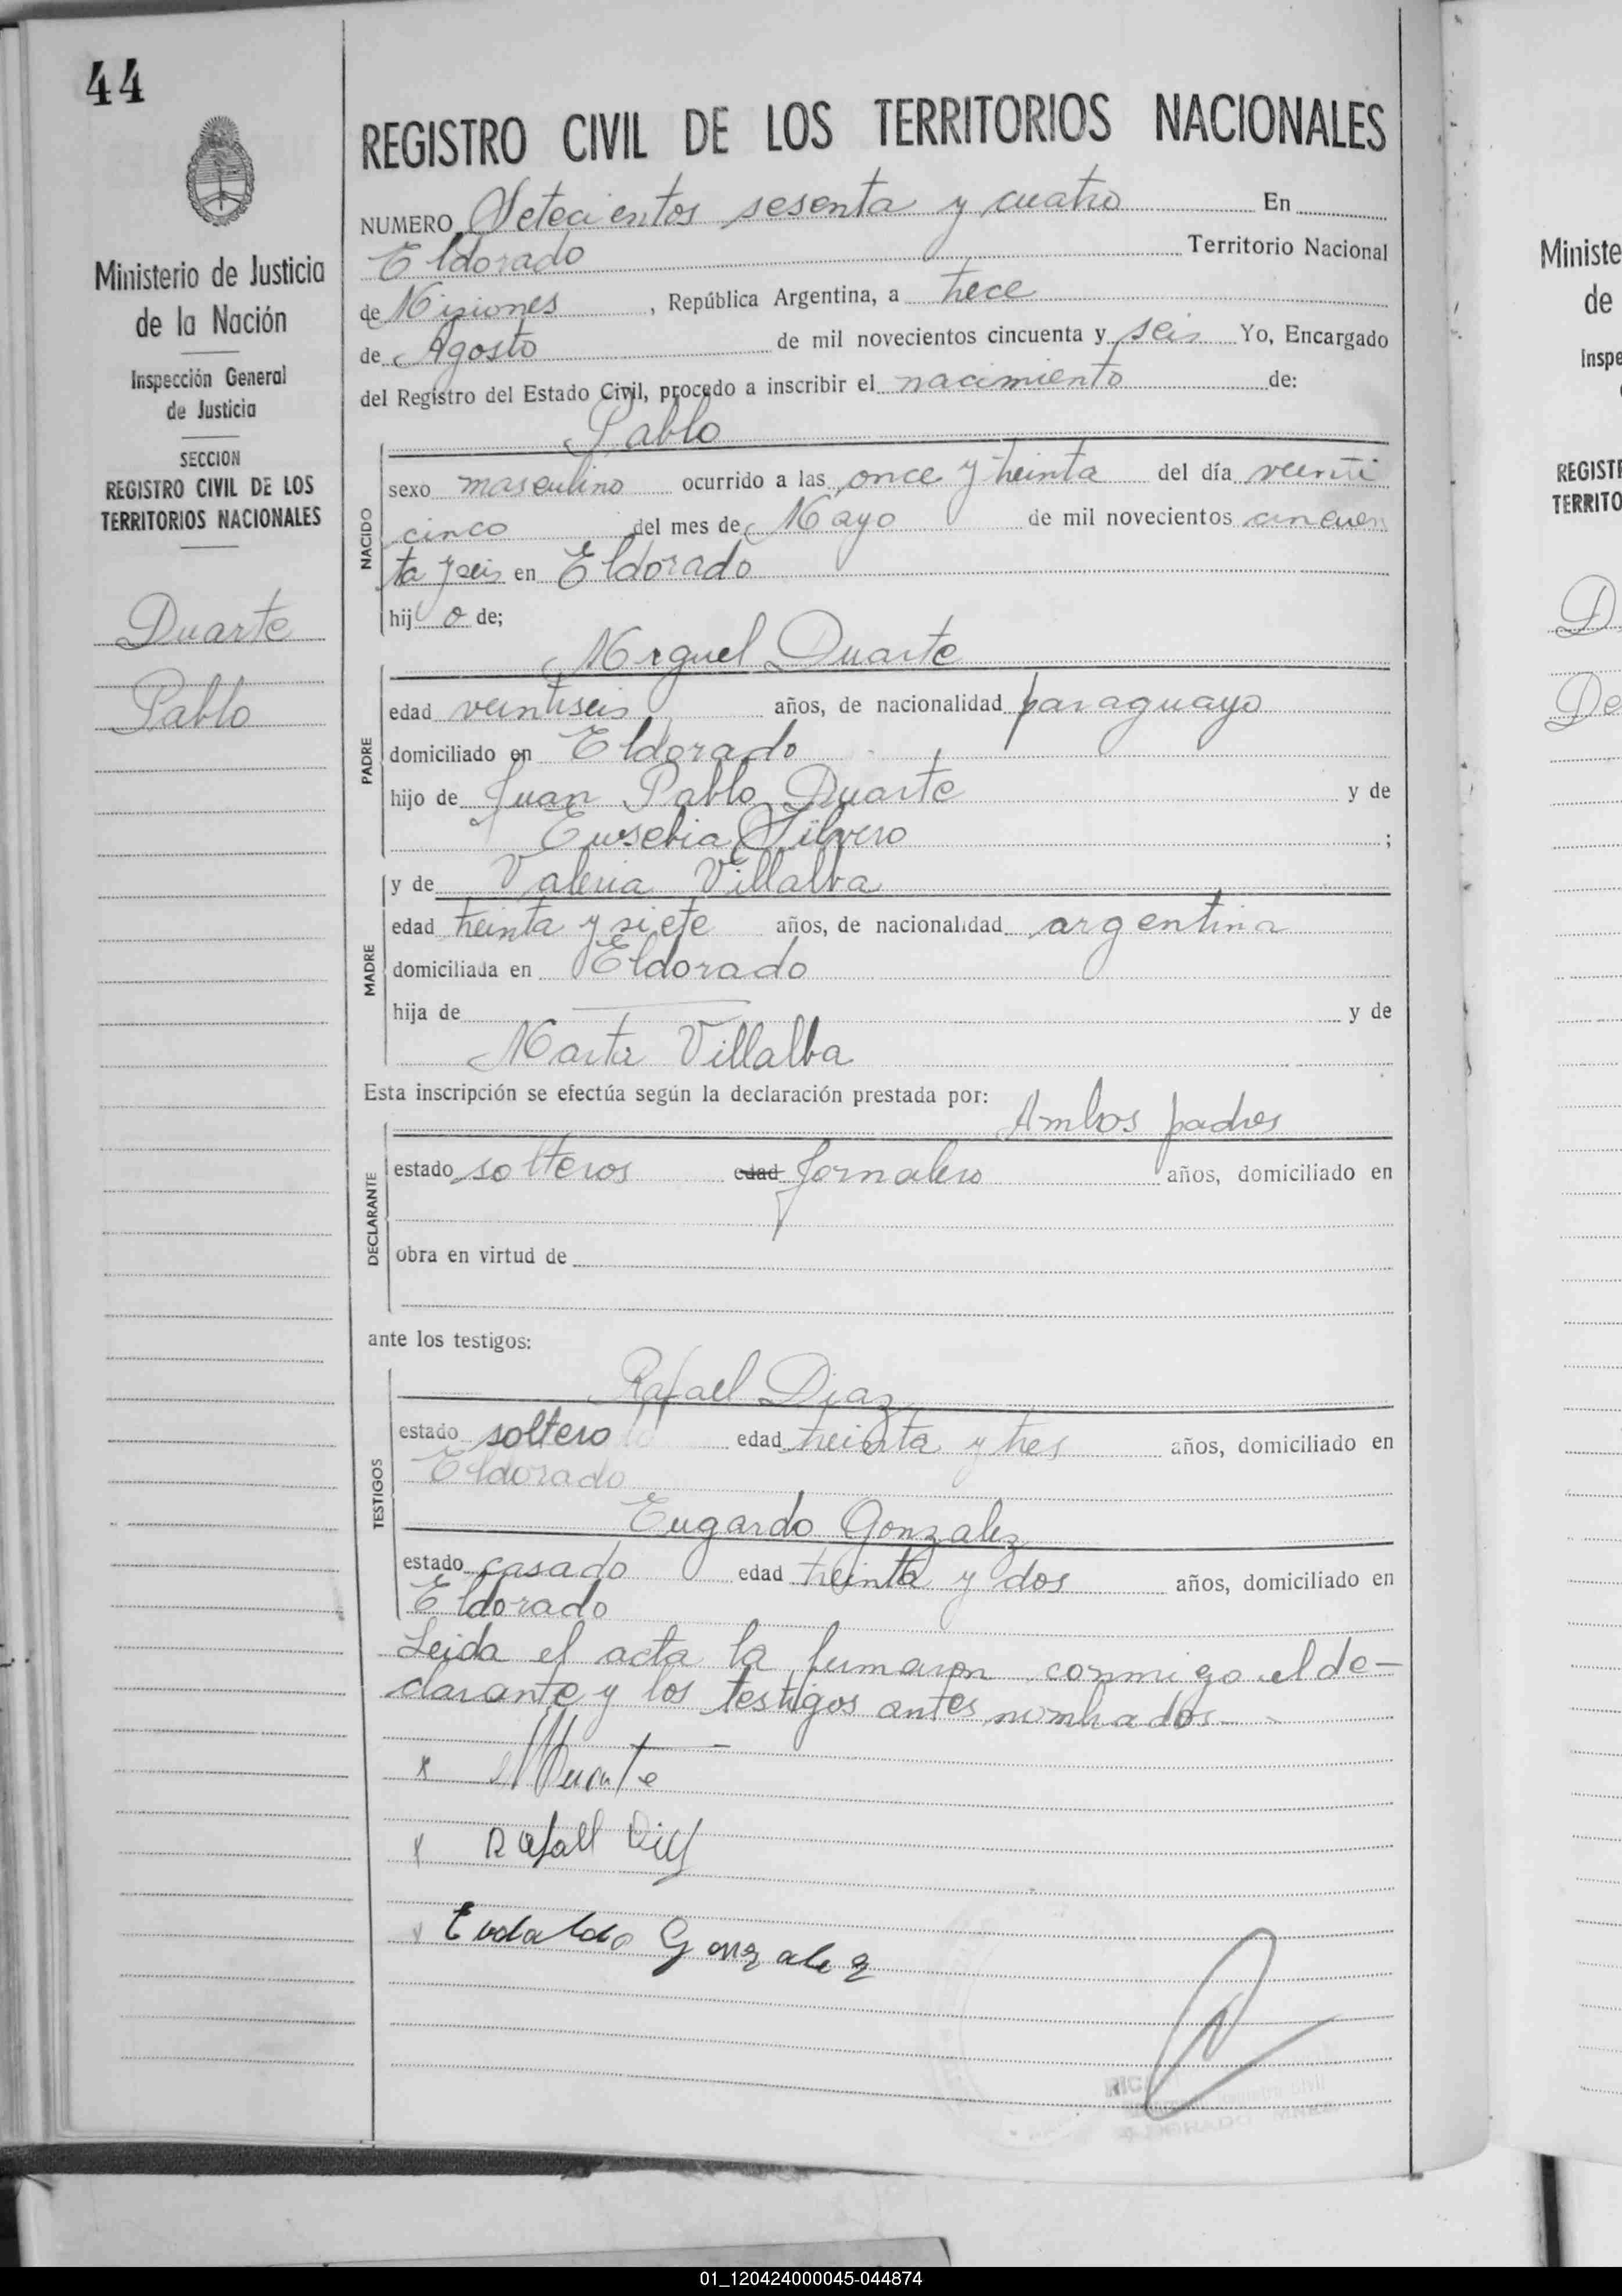 44
Ministerio de Justicia
de la Nación
Inspección General
de Justicia
SECCION
REGISTRO CIVIL DE LOS
TERRITORIOS NACIONALES
Duarte
Pablo
REGISTRO CIVIL DE LOS TERRITORIOS NACIONALES
NUMERO Setecientos sesenta y cuatro En
Eldorado Territorio Nacional
de Misiones, República Argentina, a trece
de Agosto de mil novecientos cincuenta y seis Yo, Encargado
del Registro del Estado Civil, procedo a inscribir el nacimiento de:
Pablo
NACIDO
sexo masculino ocurrido a las once y treinta del día veinti
cinco del mes de Mayo de mil novecientos cincuen
ta y seis en Eldorado
hijo de;
Miguel Duarte
PADRE
edad veintiseis años, de nacionalidad paraguayo
domiciliado en Eldorado
hijo de Juan Pablo Duarte y de
Eusebia Silvero ;
y de Valeria Villalba
MADRE
edad treinta y siete años, de nacionalidad argentina
domiciliada en Eldorado
hija de y de
Marta Villalba
Esta inscripción se efectúa según la declaración prestada por:
Ambos padres
DECLARANTE
estado solteros edad Jornalero años, domiciliado en
obra en virtud de
ante los testigos:
Rafael Diaz
TESTIGOS
estado soltero edad treinta y tres años, domiciliado en
Eldorado
Eugardo Gonzalez
estado casado edad treinta y dos años, domiciliado en
Eldorado
Leida el acta la firmaron conmigo el de-
clarante y los testigos antes nombrados
x MDuarte
x Rafael
x Eudaldo Gonzalez
Ministe
de
Inspe
REGISTR
TERRITO
D
De
01_120424000045-044874